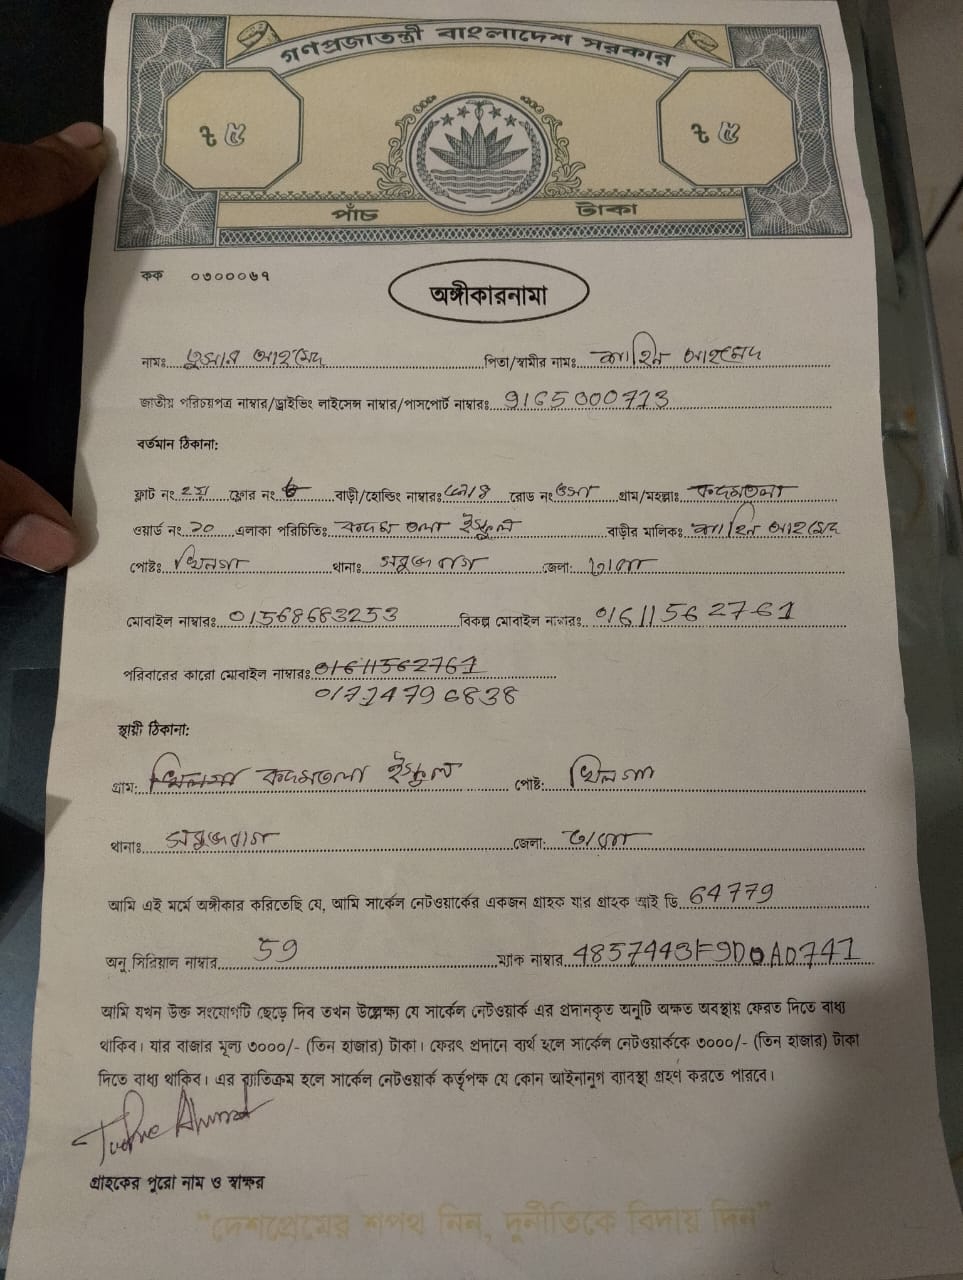 গণপ্রজাতন্ত্রী বাংলাদেশ সরকার
৳ ৫ ৳ ৫
পাঁচ টাকা
কক ০৩০০০৬৭
অঙ্গীকারনামা
নামঃ তুসার আহমেদ পিতা/স্বামীর নামঃ আহমেদ
জাতীয় পরিচয়পত্র নাম্বার/ড্রাইভিং লাইসেন্স নাম্বার/পাসপোর্ট নাম্বারঃ 9165000713
বর্তমান ঠিকানা:
ফ্লাট নং ২য় ফ্লোর নং বাড়ী/হোল্ডিং নাম্বারঃ রোড নং গ্রাম/মহল্লাঃ কদমতলা
ওয়ার্ড নং এলাকা পরিচিতিঃ কদম তলা ইস্কুল বাড়ীর মালিকঃ আহমেদ
পোষ্টঃ খিলগা থানাঃ সবুজবাগ জেলা: ঢাকা
মোবাইল নাম্বারঃ 01568683253 বিকল্প মোবাইল নাম্বারঃ 01611562761
পরিবারের কারো মোবাইল নাম্বারঃ 01611562761
01714796838
স্থায়ী ঠিকানা:
গ্রাম: খিলগা কদমতলা ইস্কুল পোষ্ট: খিলগা
থানাঃ সবুজবাগ জেলা: ঢাকা
আমি এই মর্মে অঙ্গীকার করিতেছি যে, আমি সার্কেল নেটওয়ার্কের একজন গ্রাহক যার গ্রাহক আই ডি 64779
অনু সিরিয়াল নাম্বার 59 ম্যাক নাম্বার 4857443F9D0AD741
আমি যখন উক্ত সংযোগটি ছেড়ে দিব তখন উল্লেক্ষ্য যে সার্কেল নেটওয়ার্ক এর প্রদানকৃত অনুটি অক্ষত অবস্থায় ফেরত দিতে বাধ্য
থাকিব। যার বাজার মূল্য ৩০০০/- (তিন হাজার) টাকা। ফেরৎ প্রদানে ব্যর্থ হলে সার্কেল নেটওয়ার্ককে ৩০০০/- (তিন হাজার) টাকা
দিতে বাধ্য থাকিব। এর ব্যাতিক্রম হলে সার্কেল নেটওয়ার্ক কর্তৃপক্ষ যে কোন আইনানুগ ব্যাবস্থা গ্রহণ করতে পারবে।
গ্রাহকের পুরো নাম ও স্বাক্ষর
"দেশপ্রেমের শপথ নিন, দুর্নীতিকে বিদায় দিন"